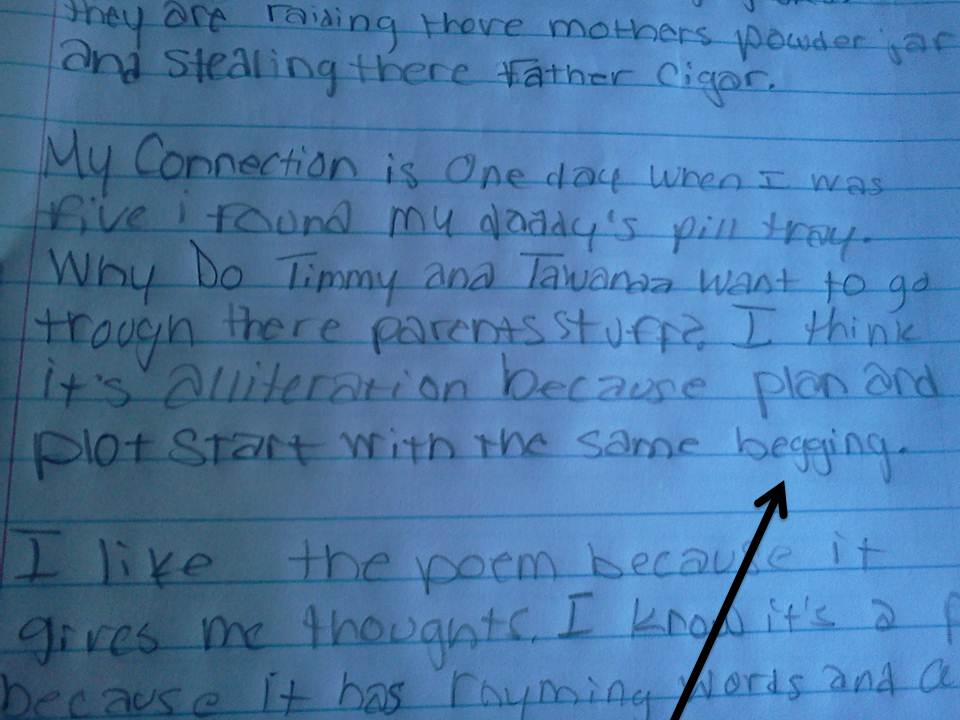 they are raising there mothers powder jar
and stealing there father cigar.
My Connection is One day when I was
five i found my daddy's pill tray.
Why Do Timmy and Tawanda want to go
trough there parents stuff? I think
it's alliteration because plan and
plot start with the same begging.
I like the poem because it
gives me thoughts. I know it's a
because it has rhyming words and a